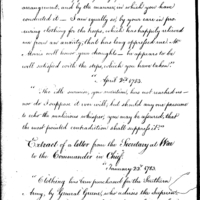 arrangement, and by the manner, in which you have
conducted it — I am equally so, by your care in pro-
curing clothing for the troops, which has happily relieved
me from an anxiety, that has long oppressed me. —
Green will know your thoughts — he appears to be
well satisfied with the steps, which you have taken."
"April 3d 1782.
"The 4thссmmon, you mention, has not reached me
nor do I suppose it ever will; but should any one presume
to utter the malicious whisper, you may be assured, that
the most pointed contradiction shall suppress it."
Extract of a letter from the Secretary at War
to the Commander in Chief.
"January 23d 1782.
"Clothing has been purchased for the Southern
Army, by General Greene, who advises the Superin-